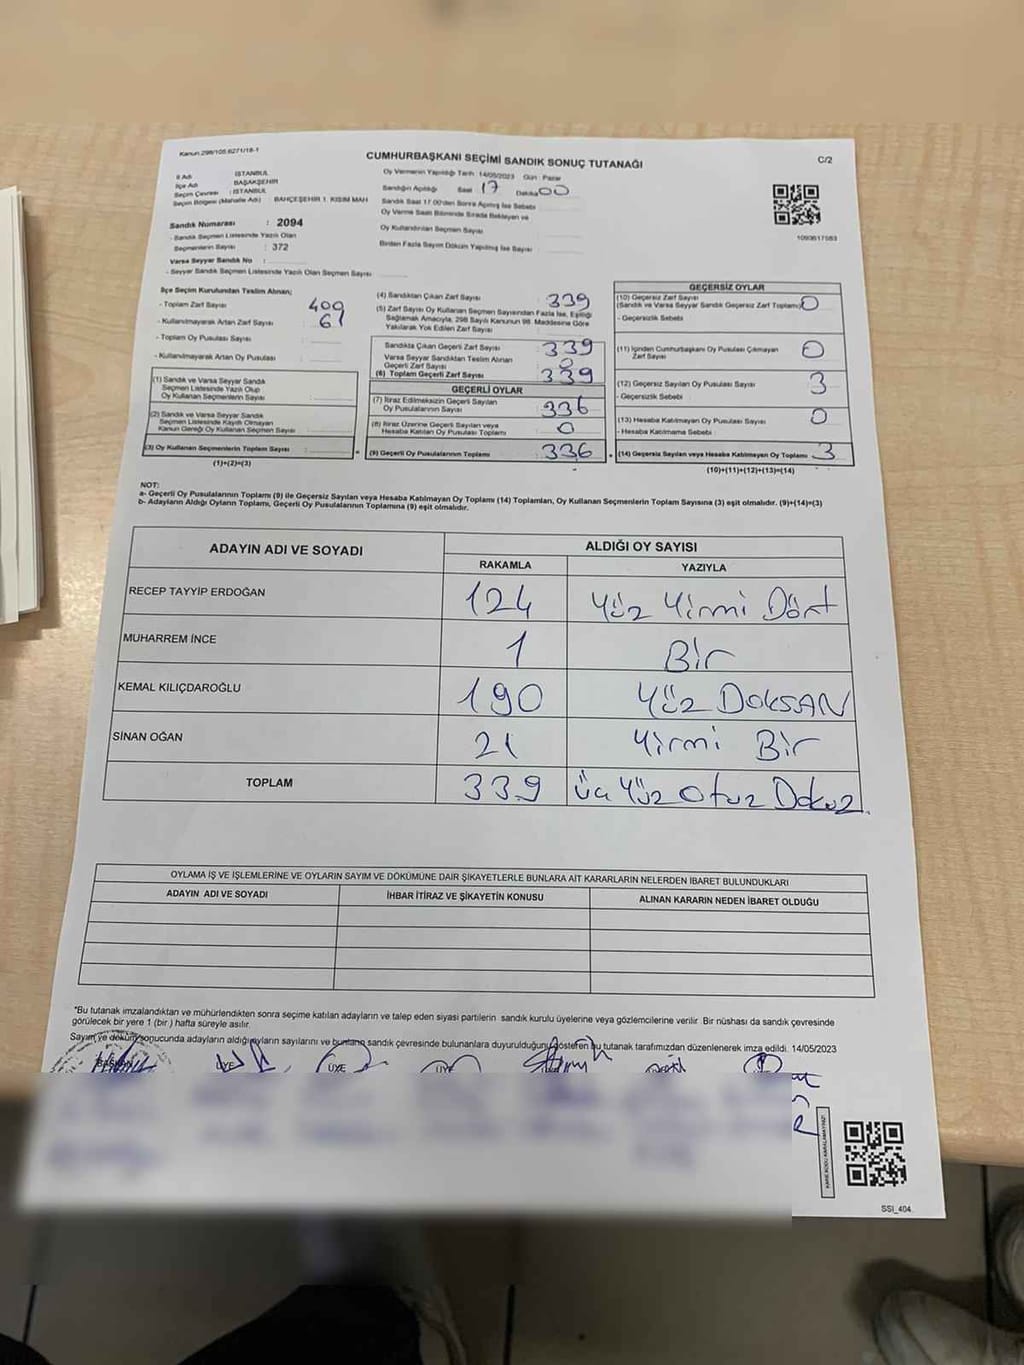 Kanun:298/105.6271/18-1
CUMHURBAŞKANI SEÇİMİ SANDIK SONUÇ TUTANAĞI
C/2
İl Adı : İSTANBUL
İlçe Adı : BAŞAKŞEHİR
Seçim Çevresi : İSTANBUL
Seçim Bölgesi (Mahalle Adı) : BAHÇEŞEHİR 1. KISIM MAH
Sandık Numarası : 2094
- Sandık Seçmen Listesinde Yazılı Olan
Seçmenlerin Sayısı : 372
Varsa Seyyar Sandık No :
- Seyyar Sandık Seçmen Listesinde Yazılı Olan Seçmen Sayısı :
Oy Vermenin Yapıldığı Tarih: 14/05/2023 Gün : Pazar
Sandığın Açıldığı Saat : 17 Dakika : 00
Sandık Saat 17:00'den Sonra Açılmış İse Sebebi :
Oy Verme Saati Bitiminde Sırada Bekleyen ve
Oy Kullandırılan Seçmen Sayısı :
Birden Fazla Sayım Döküm Yapılmış İse Sayısı :
1093617583
İlçe Seçim Kurulundan Teslim Alınan;
- Toplam Zarf Sayısı : 409
- Kullanılmayarak Artan Zarf Sayısı :
- Toplam Oy Pusulası Sayısı :
- Kullanılmayarak Artan Oy Pusulası :
(1) Sandık ve Varsa Seyyar Sandık
Seçmen Listesinde Yazılı Olup
Oy Kullanan Seçmenlerin Sayısı :
(2) Sandık ve Varsa Seyyar Sandık
Seçmen Listesinde Kayıtlı Olmayan
Kanun Gereği Oy Kullanan Seçmen Sayısı :
(3) Oy Kullanan Seçmenlerin Toplam Sayısı :
(1)+(2)=(3)
(4) Sandıktan Çıkan Zarf Sayısı : 339
(5) Zarf Sayısı Oy Kullanan Seçmen Sayısından Fazla İse, Eşitliği
Sağlamak Amacıyla, 298 Sayılı Kanunun 98. Maddesine Göre
Yakılarak Yok Edilen Zarf Sayısı :
Sandıkta Çıkan Geçerli Zarf Sayısı : 339
Varsa Seyyar Sandıktan Teslim Alınan
Geçerli Zarf Sayısı : 0
(6) Toplam Geçerli Zarf Sayısı : 339
GEÇERLİ OYLAR
(7) İtiraz Edilmeksizin Geçerli Sayılan
Oy Pusulalarının Sayısı : 336
(8) İtiraz Üzerine Geçerli Sayılan veya
Hesaba Katılan Oy Pusulası Toplamı : 0
(9) Geçerli Oy Pusulalarının Toplamı : 336
GEÇERSİZ OYLAR
(10) Geçersiz Zarf Sayısı
(Sandık ve Varsa Seyyar Sandık Geçersiz Zarf Toplamı) : 0
- Geçersizlik Sebebi :
(11) İçinden Cumhurbaşkanı Oy Pusulası Çıkmayan
Zarf Sayısı : 0
(12) Geçersiz Sayılan Oy Pusulası Sayısı : 3
- Geçersizlik Sebebi :
(13) Hesaba Katılmayan Oy Pusulası Sayısı : 0
- Hesaba Katılmama Sebebi :
(14) Geçersiz Sayılan veya Hesaba Katılmayan Oy Toplamı : 3
(10)+(11)+(12)+(13)=(14)
NOT:
a- Geçerli Oy Pusulalarının Toplamı (9) ile Geçersiz Sayılan veya Hesaba Katılmayan Oy Toplamı (14) Toplamları, Oy Kullanan Seçmenlerin Toplam Sayısına (3) eşit olmalıdır. (9)+(14)=(3)
b- Adayların Aldığı Oyların Toplamı, Geçerli Oy Pusulalarının Toplamına (9) eşit olmalıdır.
ADAYIN ADI VE SOYADI
ALDIĞI OY SAYISI
RAKAMLA YAZIYLA
RECEP TAYYİP ERDOĞAN 124 Yüz Yirmi Dört
MUHARREM İNCE 1 Bir
KEMAL KILIÇDAROĞLU 190 Yüz DOKSAN
SİNAN OĞAN 21 Yirmi Bir
TOPLAM 339 Üç Yüz Otuz Dokuz
OYLAMA İŞ VE İŞLEMLERİNE VE OYLARIN SAYIM VE DÖKÜMÜNE DAİR ŞİKAYETLERLE BUNLARA AİT KARARLARIN NELERDEN İBARET BULUNDUKLARI
ADAYIN ADI VE SOYADI İHBAR İTİRAZ VE ŞİKAYETİN KONUSU ALINAN KARARIN NEDEN İBARET OLDUĞU
*Bu tutanak imzalandıktan ve mühürlendikten sonra seçime katılan adayların ve talep eden siyasi partilerin sandık kurulu üyelerine veya gözlemcilerine verilir .Bir nüshası da sandık çevresinde
görülecek bir yere 1 (bir ) hafta süreyle asılır.
Sayım ve döküm sonucunda adayların aldığı oyların sayılarını ve bunların sandık çevresinde bulunanlara duyurulduğunu gösteren bu tutanak tarafımızdan düzenlenerek imza edildi. 14/05/2023
BAŞKAN ÜYE ÜYE
KARE KODU KARALAMAYINIZ!
SSI_404